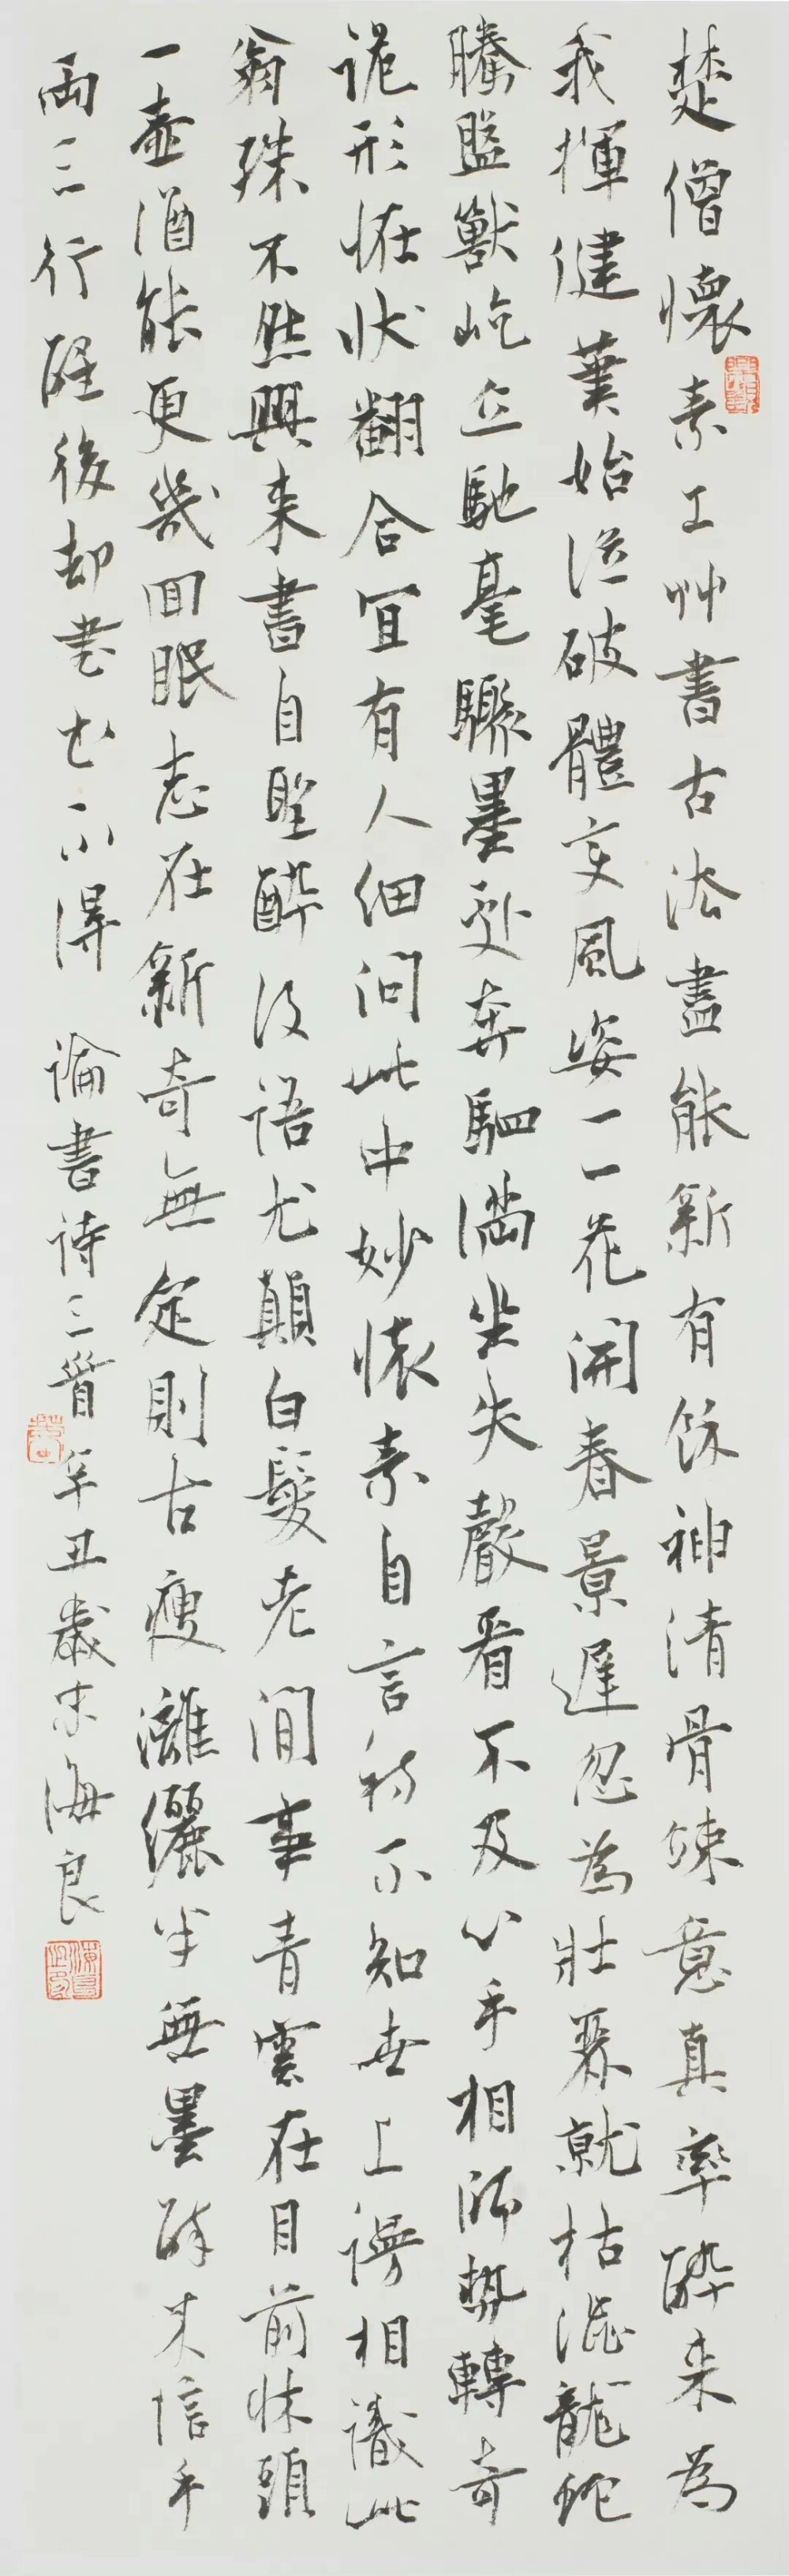 楚僧懷素工艸書古法盡能新有餘神清骨竦意真率醉來為
我揮健筆始從破體變風姿一一花開春景遲忽為壯麗就枯澀龍蛇
騰盤獸屹立馳毫驟墨劇奔駟滿坐失聲看不及心手相師勢轉奇
詭形怪狀翻合宜有人細問此中妙懷素自言初不知世上謾相識此
翁殊不然興來書自聖醉後語尤顛白髮老閒事青雲在目前牀頭
一壺酒能更幾回眠志在新奇無定則古瘦灕纚半無墨醉來信手
兩三行醒後却書書不得 論書詩三首 辛丑歲末海良